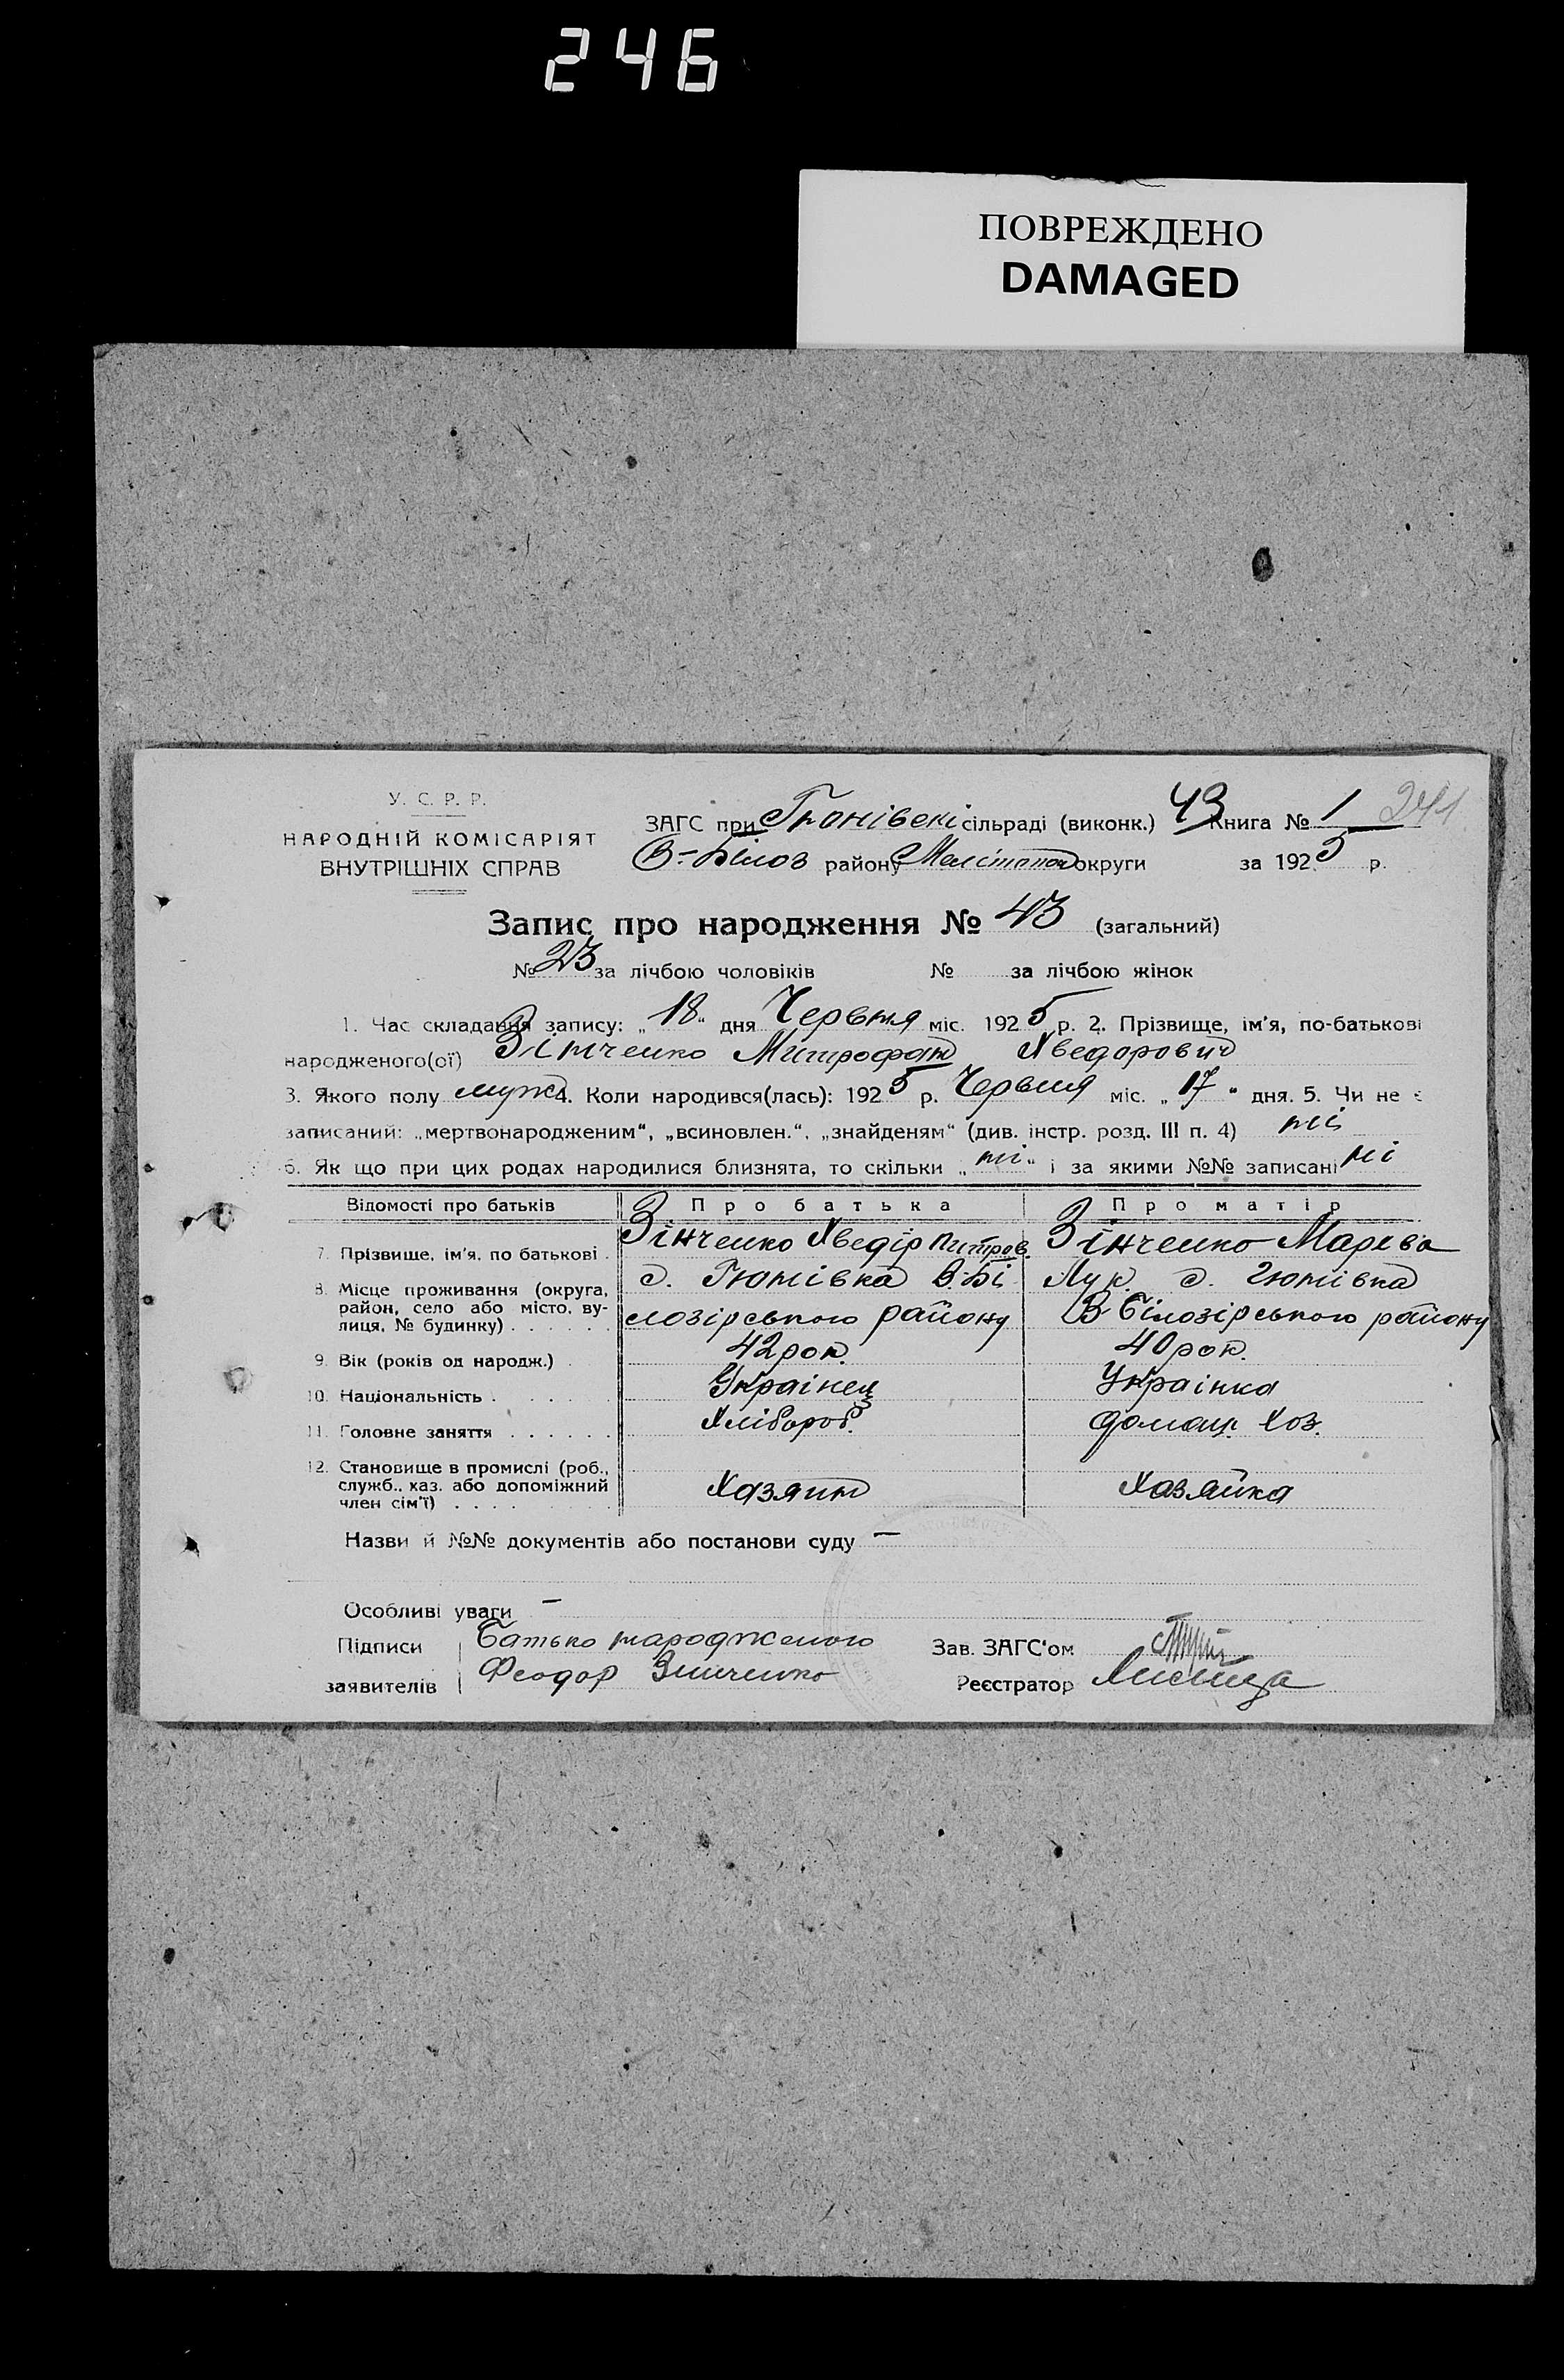 246
ПОВРЕЖДЕНО
DAMAGED
У. С. Р. Р.
НАРОДНІЙ КОМІСАРІЯТ
ВНУТРІШНІХ СПРАВ
ЗАГС при сільраді (виконк.) 43 Книга № 1 241
В-Білоз району Мелітопол округи за 1925 р.
Запис про народження № 43 (загальний)
№ 23 за лічбою чоловіків № за лічбою жінок
1. Час складання запису: „18" дня Червня міс. 1925 р. 2. Прізвище, ім'я, по-батькові
народженого(ої) Зінченко Митрофан Хведорович
3. Якого полу муж 4. Коли народився(лась): 1925 р. Червня міс. „17" дня. 5. Чи не є
записаний: „мертвонародженим", „всиновлен.", „знайденям" (див. інстр. розд. III п. 4) ні
6. Як що при цих родах народилися близнята, то скільки „ні" і за якими №№ записані ні
Відомості про батьків Про батька Про матір
7. Прізвище, ім'я, по батькові . Зінченко Хведір Питров. Зінченко Марева
8. Місце проживання (округа, район, село або місто, вулиця, № будинку) . . . . . . с. Гюнівка В. Бі Лук. с. Гюнівка
лозірського району В-Білозірського району
9. Вік (років од народж.) . 42 рок. 40 рок.
10. Національність . . . . Українец Українка
11. Головне заняття . . . . . . Хлібороб. домаш. хоз.
12. Становище в промислі (роб., служб., хаз. або допоміжний член сім'ї) . . . . Хазяин Хазяйка
Назви й №№ документів або постанови суду —
Особливі уваги —
Підписи Батько народженого Зав. ЗАГС'ом
заявителів Феодор Зинченко Реєстратор Лисица